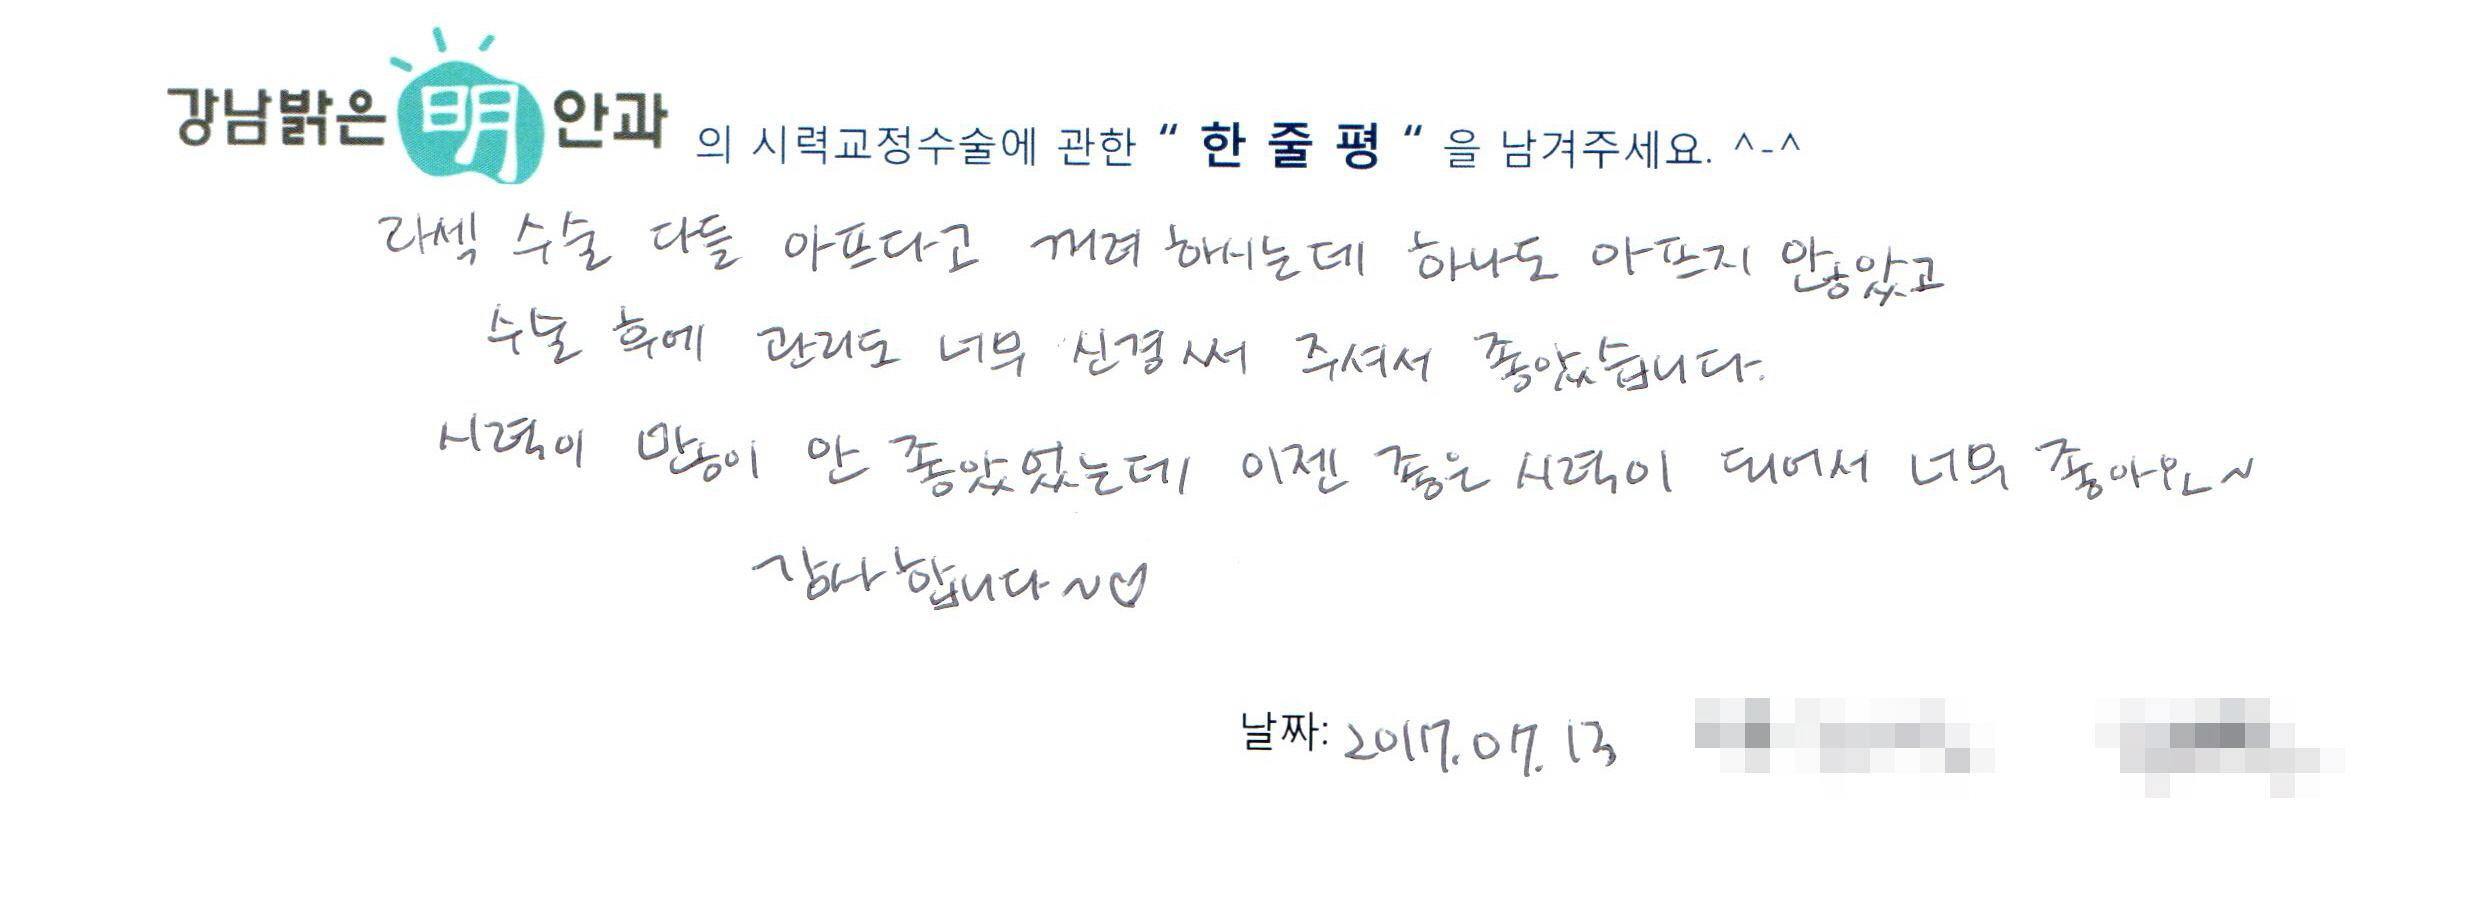 강남밝은 明 안과 의 시력교정수술에 관한 “ 한 줄 평 “ 을 남겨주세요. ^-^
라섹 수술 다들 아프다고 꺼려 하시는데 하나도 아프지 않았고
수술 후에 관리도 너무 신경써 주셔서 좋았습니다.
시력이 많이 안 좋았었는데 이젠 좋은 시력이 되어서 너무 좋아요~
감사합니다~♡
날짜: 2017.07.13